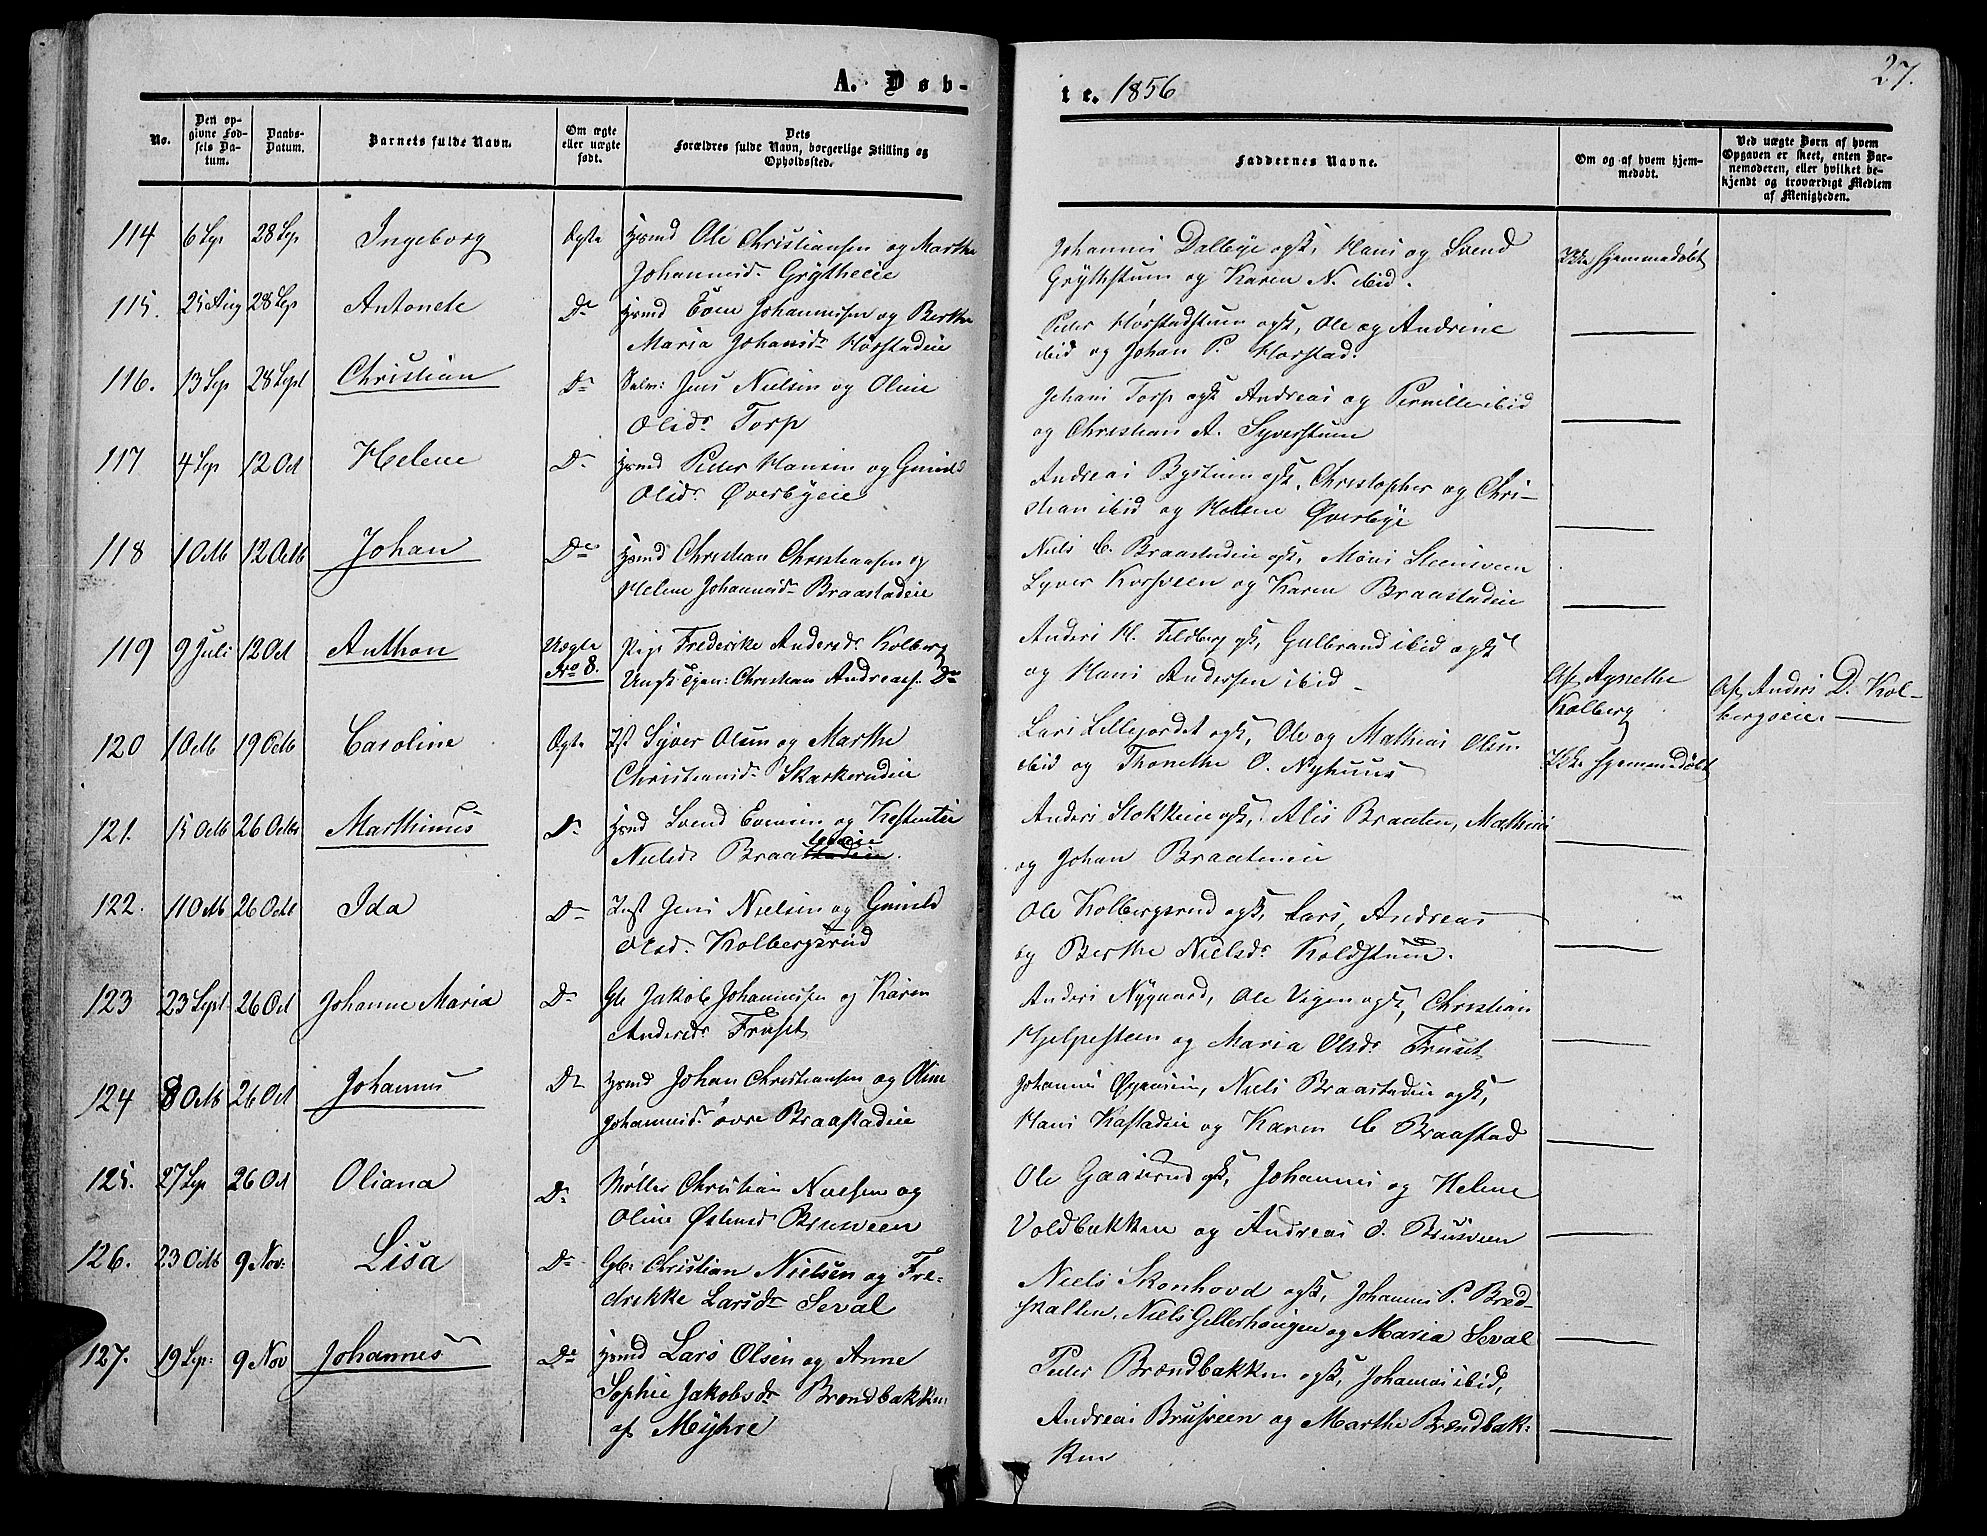 A. Døb-
te. 1856
27.
No.
Den op-
givne Fød-
sels Da-
tum.
Daabs-
Datum.
Barnets fulde Navn.
Om ægte
eller uægte
født.
Dets
Forældres fulde Navn, borgerlige Stilling og
Opholdssted.
Faddernes Navne.
Om og af hvem hjem-
medøbt.
Ved uægte Børn af hvem
Opgaven er skeet, enten Bar-
nemoderen, eller hvilket be-
kjendt og troværdigt Medlem
af Menigheden.
114 6 Sep 28 Sep Ingeborg Ægte Hsmd Ole Christiansen og Marthe
Johannesdr Grytheeie
Johannes Dalbye og Hans og Svend
Grythstuen og Karen N. ibid.
Ikke hjemmedøbt
115. 25 Aug 28 Sep Antonete Do Hsmd Even Johannessen og Berthe
Maria Johansdr Horstadeie
Peder Horstadstuen Ole og Andrine
ibid og Johan P. Horstad.
116. 13 Sep 28 Sept Christian Do Selv: Jens Nielsen og Oline
Olsdr Torp
Johans Torp Andreas og Pernille ibid
og Christian A. Syverstuen
117 4 Sep 12 Oct Helene Do Hsmd Peder Hansen og Gunild
Olsdr Øverbyeie
Andreas Bystuen Christopher og Chri-
stian ibid og Helene Øverbye
118 1 Octb 12 Octb Johan Do Hsmd Christian Christiansen og
Helene Johannesdr Braastadeie
Niels C. Braastadeie Møns Steensveen
Syver Korsveen og Karen Braastadeie
119 9 Juli 12 Oct Anthon Uægte
No 8.
Pige Frederike Andersdr Kolberg
Ungk: Tjen: Christian Andreass. Do
Anders H. Feldberg Gulbrand ibid
og Hans Andersen ibid
Af Agnethe
Kolberg
Af Anders D. Kol-
bergseie.
120 1 Octb 19 Octb Caroline Ægte Inst Syver Olsen og Marthe
Christiansdr Skarkerudeie
Lars Lillejordet Ole og Mathias Olsen
ibid og Thonethe O. Nyhuus
Ikke hjemmedøbt
121. 15 Octb 26 Octbr Marthinus Do Hsmd Svend Evensen og
Nielsdr Braastadeie
Anders Stokkeie Alis Braaten, Mathias
og Johan Braateneie
122. 11 Octb 26 Octb Ida Do Inst Jens Nielsen og Gunild
Olsdr Kolbergsrud
Ole Kolbergsrud Lars, Andreas
og Berthe Nielsdr Koldstuen.
123 23 Sept 26 Oct Johanne Maria Do Gb Jakob Johannessen og Karen
Andersdr Fruset
Anders Nygaard, Ole Vigen Christian
Hjelpesteen og Maria Olsdr Fruset
124 8 Octb 26 Oct Johannes Do Hsmd Johan Christiansen og Oline
Johannesdr øvre Braastadeie
Johannes Niels Braastadeie
Hans Kastadeie og Karen C Braastad
125. 27 Sep 26 Oct Oliana Do Møller Christian Nielsen og
Oline Brusveen
Ole Gaaserud Johannes og Helene
Voldbakken og Andreas O. Brusveen
126. 23 Octb 9 Nov: Lisa Do Gb: Christian Nielsen og Fre-
drikke Larsdr Seval
Niels Skonhovd Johannes P. Bred-
skallen, Niels Gillerhaugen og Maria Seval
127. 19 Sep: 9 Nov Johannes Do Hsmd Lars Olsen og Anne
Sophie Jakobsdr Brændbakken
af Meyhre
Peder Brændbakken Johannes ibid,
Andreas Brusveen og Marthe Brændbak-
ken